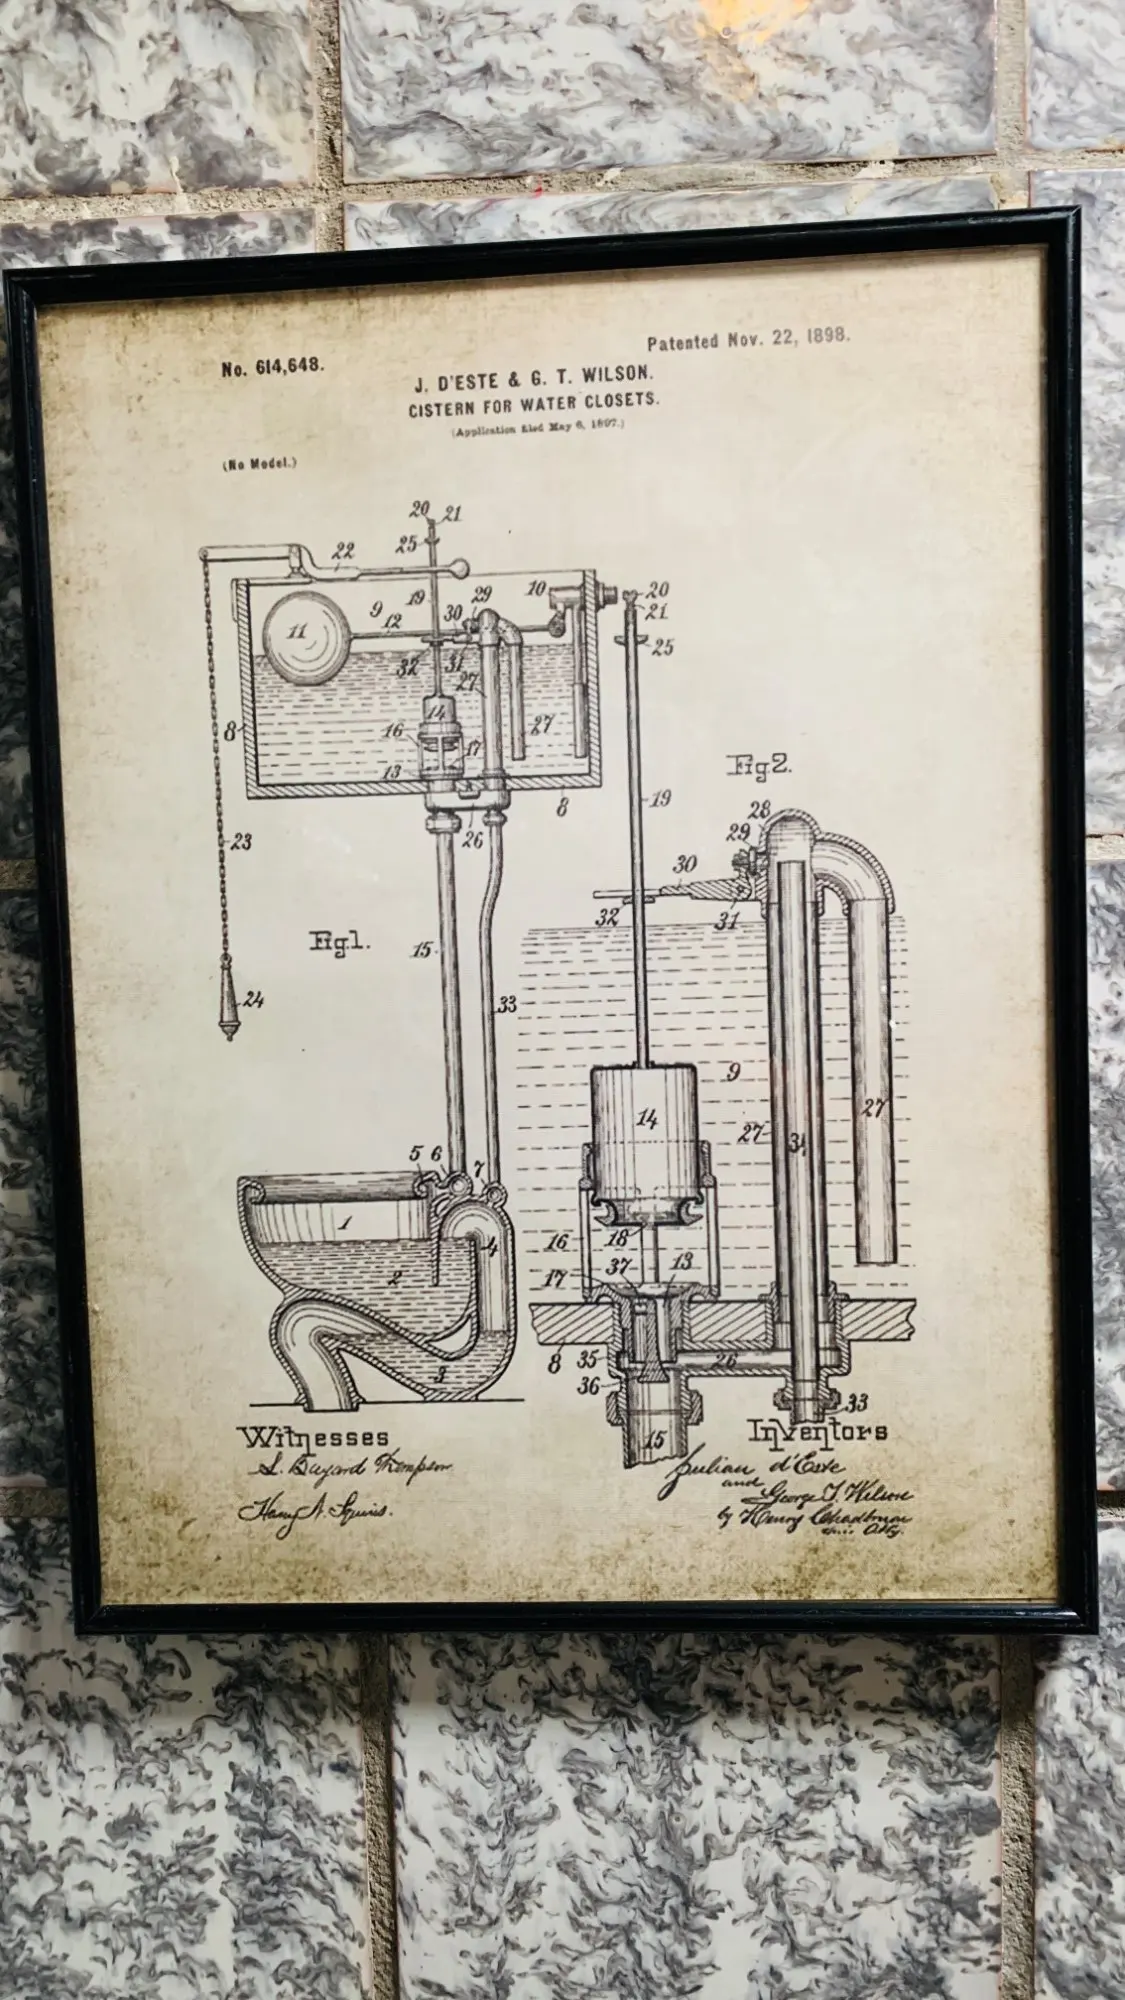 No. 614,648.
Patented Nov. 22, 1898.
J. D'ESTE & G. T. WILSON.
CISTERN FOR WATER CLOSETS.
(Application filed May 6, 1897.)
(No Model.)
20 21
25
22
19
9
12
11
30 29
10
20
21
25
32 31
27
14
16
17
27
13
8
8
26
23
19
Fig. 2.
28
29
30
31
32
Fig. 1.
15
24
33
9
14
27
27
5 6 7
1
4
2
3
16
18
37
13
17
8
35
26
36
33
15
Witnesses
Inventors
S. Bayard Thompson
Julian d'Este
and
George T. Wilson
Harry A. Squires.
by Henry
Atty.